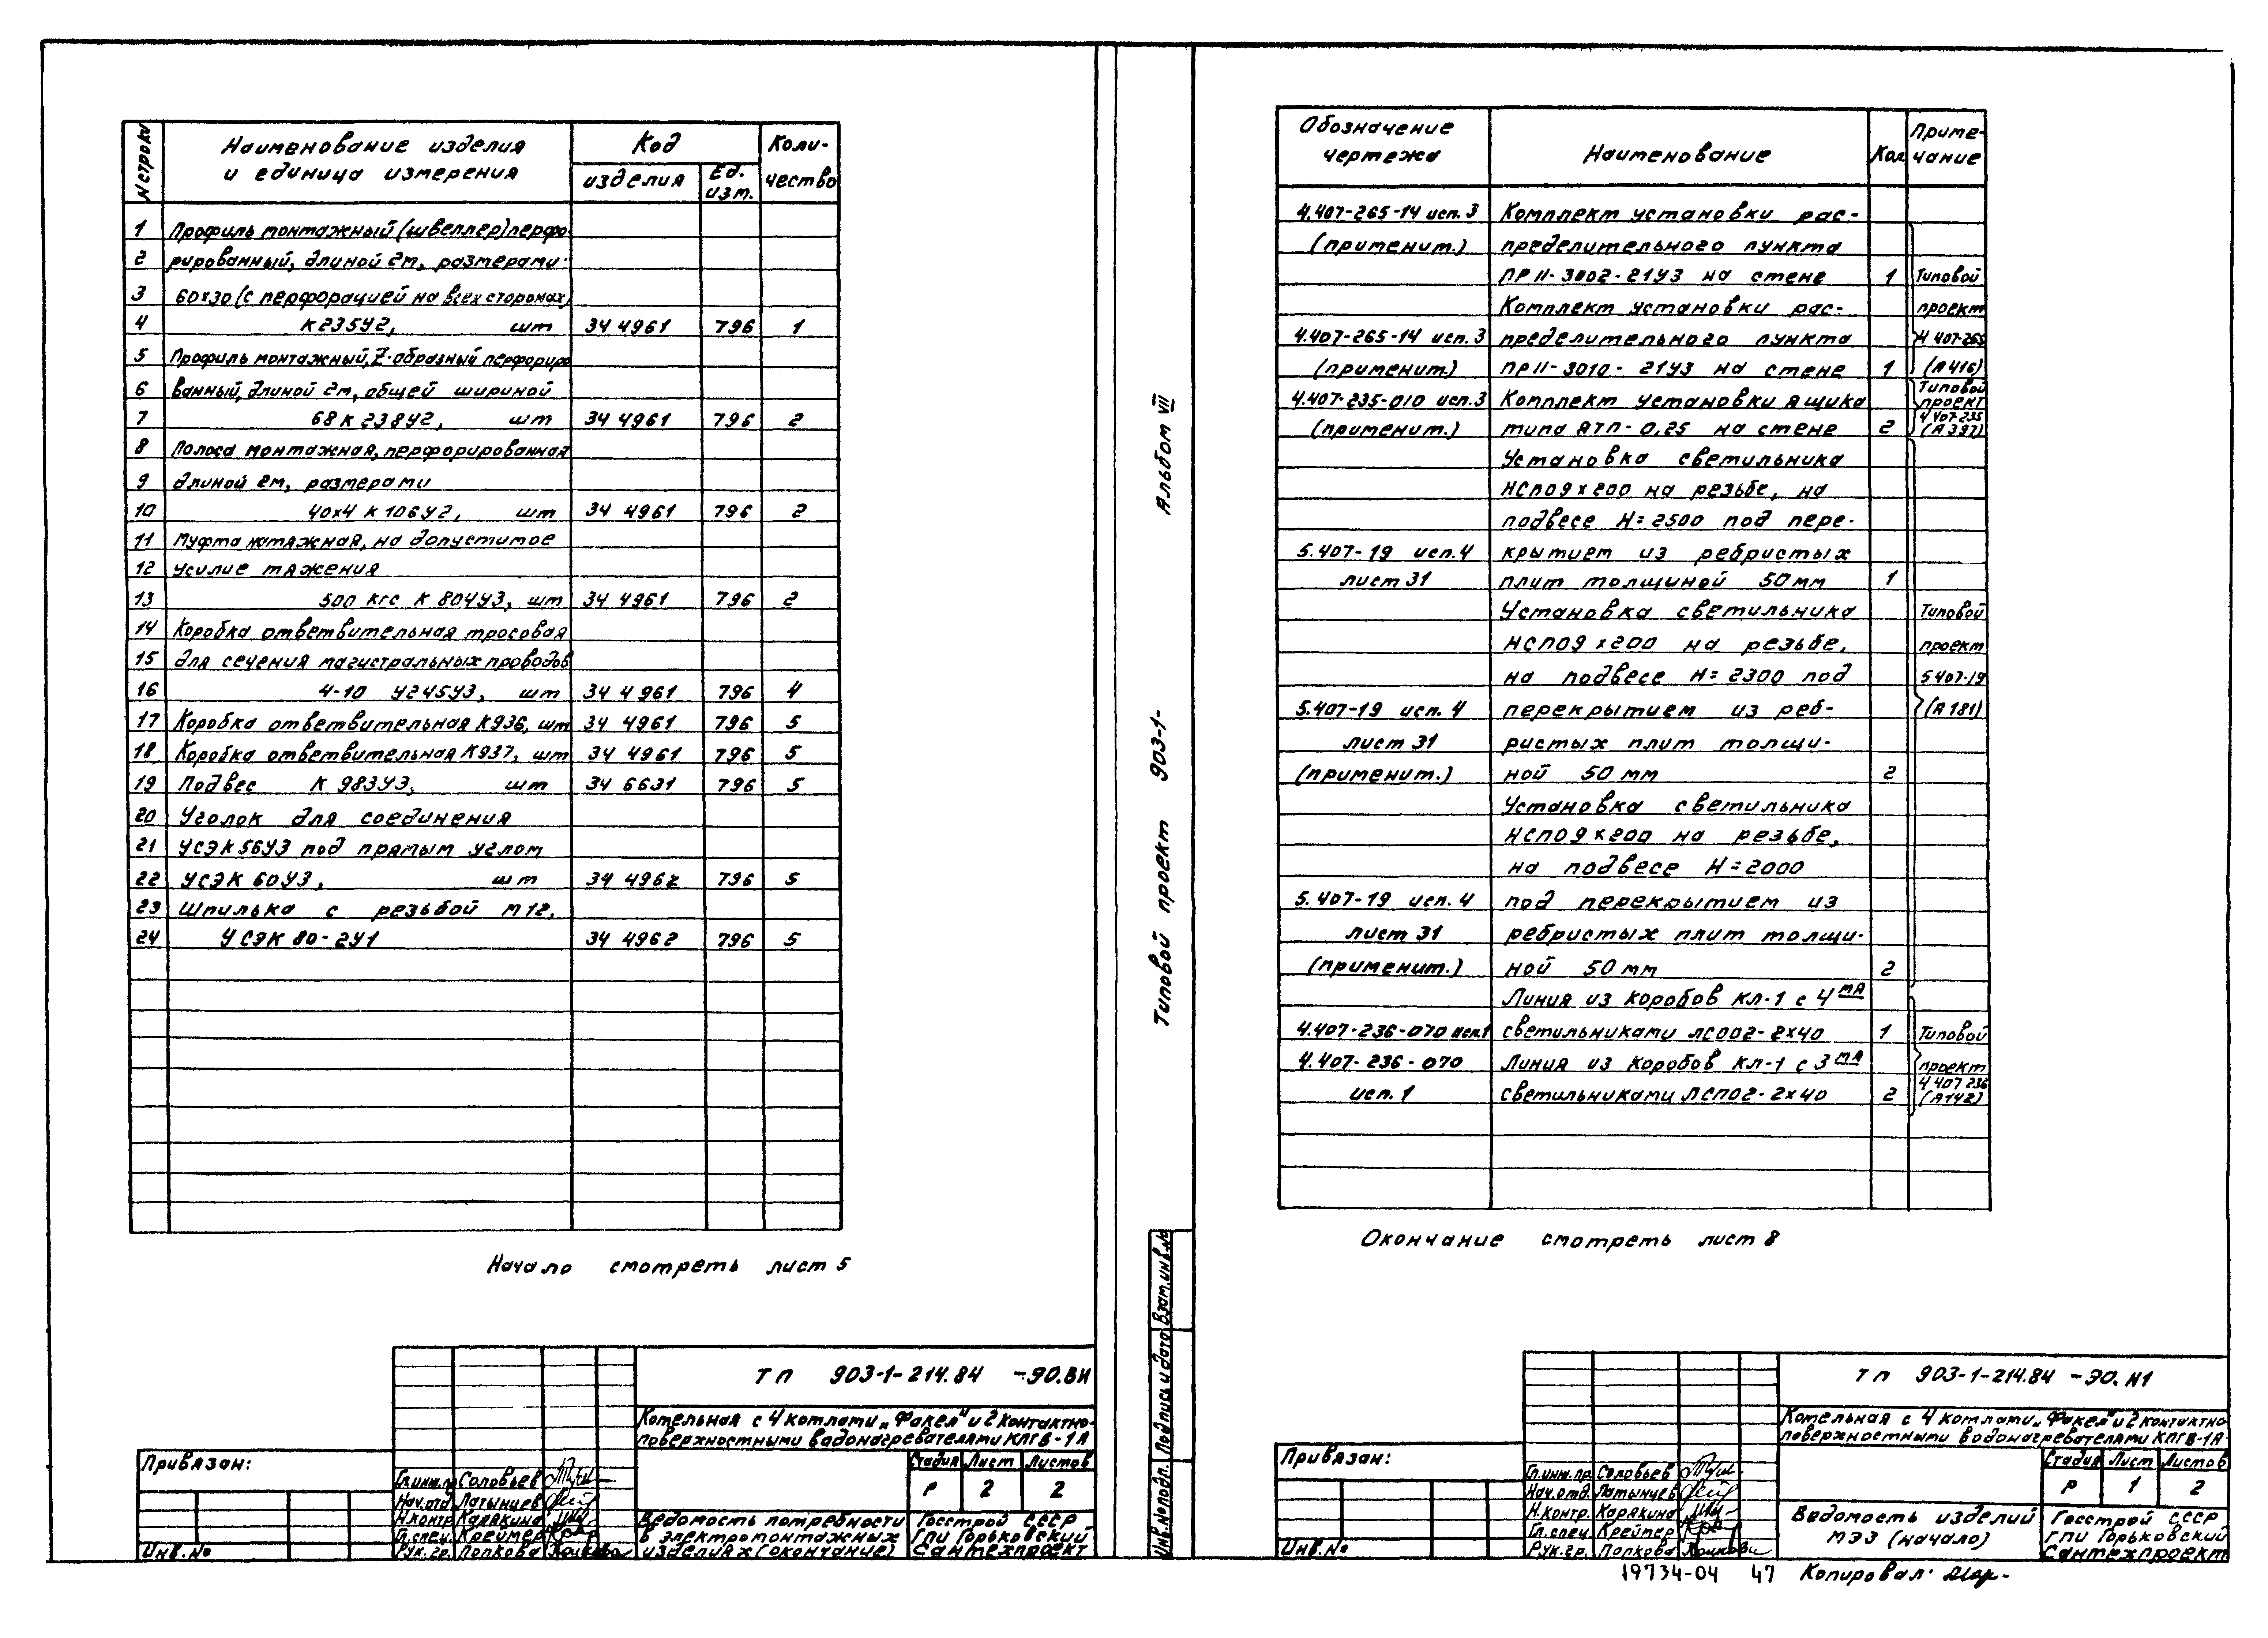 N строки
Наименование изделия
и единица измерения
Код
изделия
Ед.
изм.
Коли-
чество
1 Профиль монтажный (швеллер) перфо
2 рированный, длиной 2м, размерами
3 60х30 (с перфорацией на всех сторонах)
4 К235У2, шт 34 4961 796 1
5 Профиль монтажный, Z-образный перфориро
6 ванный, длиной 2м, общей шириной
7 68 К238У2, шт 34 4961 796 2
8 Полоса монтажная, перфорированная
9 длиной 2м, размерами
10 40х4 К106У2, шт 34 4961 796 2
11 Муфта натяжная, на допустимое
12 усилие тяжения
13 500 кгс К 804У3, шт 34 4961 796 2
14 Коробка ответвительная тросовая
15 для сечения магистральных проводов
16 4-10 У245У3, шт 34 4961 796 4
17 Коробка ответвительная К936, шт 34 4961 796 5
18 Коробка ответвительная К937, шт 34 4961 796 5
19 Подвес К 983У3, шт 34 6631 796 5
20 Уголок для соединения
21 УСЭК56У3 под прямым углом
22 УСЭК 60У3, шт 34 4962 796 5
23 Шпилька с резьбой М12,
24 УСЭК 80-2У1 34 4962 796 5
Начало смотреть лист 5
ТП 903-1-214.84 -ЭО.ВИ
Котельная с 4 котлами „Факел" и 2 контактно-
поверхностными водонагревателями КПГВ-1А
Стадия Лист Листов
Р 2 2
Привязан:
Инв.№
Гл.инж.пр Соловьев
Нач.отд. Латынцев
Н.контр. Карякина
Гл.спец. Креймер
Рук.гр. Попкова
Ведомость потребности
в электромонтажных
изделиях (окончание)
Госстрой СССР
ГПИ Горьковский
Сантехпроект
Альбом VII
Типовой проект 903-1-
Взам.инв.№
Подпись и дата
Инв.№подл.
Обозначение
чертежа
Наименование
Кол
Приме-
чание
4.407-265-14 исп. 3 Комплект установки рас-
(применит.) пределительного пункта
ПР11-3002-21У3 на стене 1 Типовой
Комплект установки рас- проект
4.407-265-14 исп. 3 пределительного пункта 4 407-265
(применит.) ПР11-3010-21У3 на стене 1 (А416)
4.407-235-010 исп.3 Комплект установки ящика Типовой проект
(применит.) типа АТП-0,25 на стене 2 4 407-235 (А397)
Установка светильника
НСП09х200 на резьбе, на
подвесе Н=2500 под пере-
5.407-19 исп.4 крытием из ребристых
лист 31 плит толщиной 50мм 1
Установка светильника Типовой
НСП09х200 на резьбе, проект
на подвесе Н=2300 под 5 407-19
5.407-19 исп. 4 перекрытием из реб- (А181)
лист 31 ристых плит толщи-
(применит.) ной 50 мм 2
Установка светильника
НСП09х200 на резьбе,
на подвесе Н=2000
5.407-19 исп. 4 под перекрытием из
лист 31 ребристых плит толщи-
(применит.) ной 50 мм 2
Линия из коробов КЛ-1 с 4мя
4.407-236-070 исп.1 светильниками ЛСО02-2х40 1 Типовой
4.407-236-070 Линия из коробов КЛ-1 с 3мя проект
исп. 1 светильниками ЛСП02-2х40 2 4 407 236 (А142)
Окончание смотреть лист 8
ТП 903-1-214.84 -ЭО.И1
Котельная с 4 котлами „Факел" и 2 контактно
поверхностными водонагревателями КПГВ-1А
Стадия Лист Листов
Р 1 2
Привязан:
Инв.№
Гл.инж.пр. Соловьев
Нач.отд. Латынцев
Н.контр. Карякина
Гл.спец. Креймер
Рук.гр. Попкова
Ведомость изделий
МЭЗ (начало)
Госстрой СССР
ГПИ Горьковский
Сантехпроект
19734-04 47 Копировал: